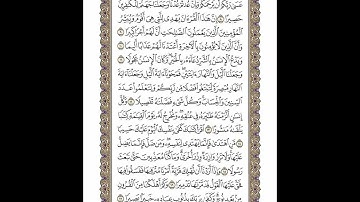 عَسَىٰ رَبُّكُمْ أَن يَرْحَمَكُمْ وَإِنْ عُدتُّمْ عُدْنَا وَجَعَلْنَا جَهَنَّمَ لِلْكَٰفِرِينَ
حَصِيرًا ۝ إِنَّ هَٰذَا ٱلْقُرْءَانَ يَهْدِى لِلَّتِى هِىَ أَقْوَمُ وَيُبَشِّرُ
ٱلْمُؤْمِنِينَ ٱلَّذِينَ يَعْمَلُونَ ٱلصَّٰلِحَٰتِ أَنَّ لَهُمْ أَجْرًا كَبِيرًا ۝
وَأَنَّ ٱلَّذِينَ لَا يُؤْمِنُونَ بِٱلْءَاخِرَةِ أَعْتَدْنَا لَهُمْ عَذَابًا أَلِيمًا
۝ وَيَدْعُ ٱلْإِنسَٰنُ بِٱلشَّرِّ دُعَآءَهُۥ بِٱلْخَيْرِ وَكَانَ ٱلْإِنسَٰنُ عَجُولًا
۝ وَجَعَلْنَا ٱلَّيْلَ وَٱلنَّهَارَ ءَايَتَيْنِ فَمَحَوْنَآ ءَايَةَ ٱلَّيْلِ وَجَعَلْنَآ ءَايَةَ
ٱلنَّهَارِ مُبْصِرَةً لِّتَبْتَغُوا۟ فَضْلًا مِّن رَّبِّكُمْ وَلِتَعْلَمُوا۟ عَدَدَ
ٱلسِّنِينَ وَٱلْحِسَابَ وَكُلَّ شَىْءٍ فَصَّلْنَٰهُ تَفْصِيلًا ۝ وَكُلَّ
إِنسَٰنٍ أَلْزَمْنَٰهُ طَٰٓئِرَهُۥ فِى عُنُقِهِۦ وَنُخْرِجُ لَهُۥ يَوْمَ ٱلْقِيَٰمَةِ كِتَٰبًا
يَلْقَىٰهُ مَنشُورًا ۝ ٱقْرَأْ كِتَٰبَكَ كَفَىٰ بِنَفْسِكَ ٱلْيَوْمَ عَلَيْكَ حَسِيبًا
۝ مَّنِ ٱهْتَدَىٰ فَإِنَّمَا يَهْتَدِى لِنَفْسِهِۦ وَمَن ضَلَّ فَإِنَّمَا يَضِلُّ
عَلَيْهَا وَلَا تَزِرُ وَازِرَةٌ وِزْرَ أُخْرَىٰ وَمَا كُنَّا مُعَذِّبِينَ حَتَّىٰ نَبْعَثَ
رَسُولًا ۝ وَإِذَآ أَرَدْنَآ أَن نُّهْلِكَ قَرْيَةً أَمَرْنَا مُتْرَفِيهَا فَفَسَقُوا۟ فِيهَا
فَحَقَّ عَلَيْهَا ٱلْقَوْلُ فَدَمَّرْنَٰهَا تَدْمِيرًا ۝ وَكَمْ أَهْلَكْنَا مِنَ ٱلْقُرُونِ
مِنۢ بَعْدِ نُوحٍ وَكَفَىٰ بِرَبِّكَ بِذُنُوبِ عِبَادِهِۦ خَبِيرًۢا بَصِيرًا ۝